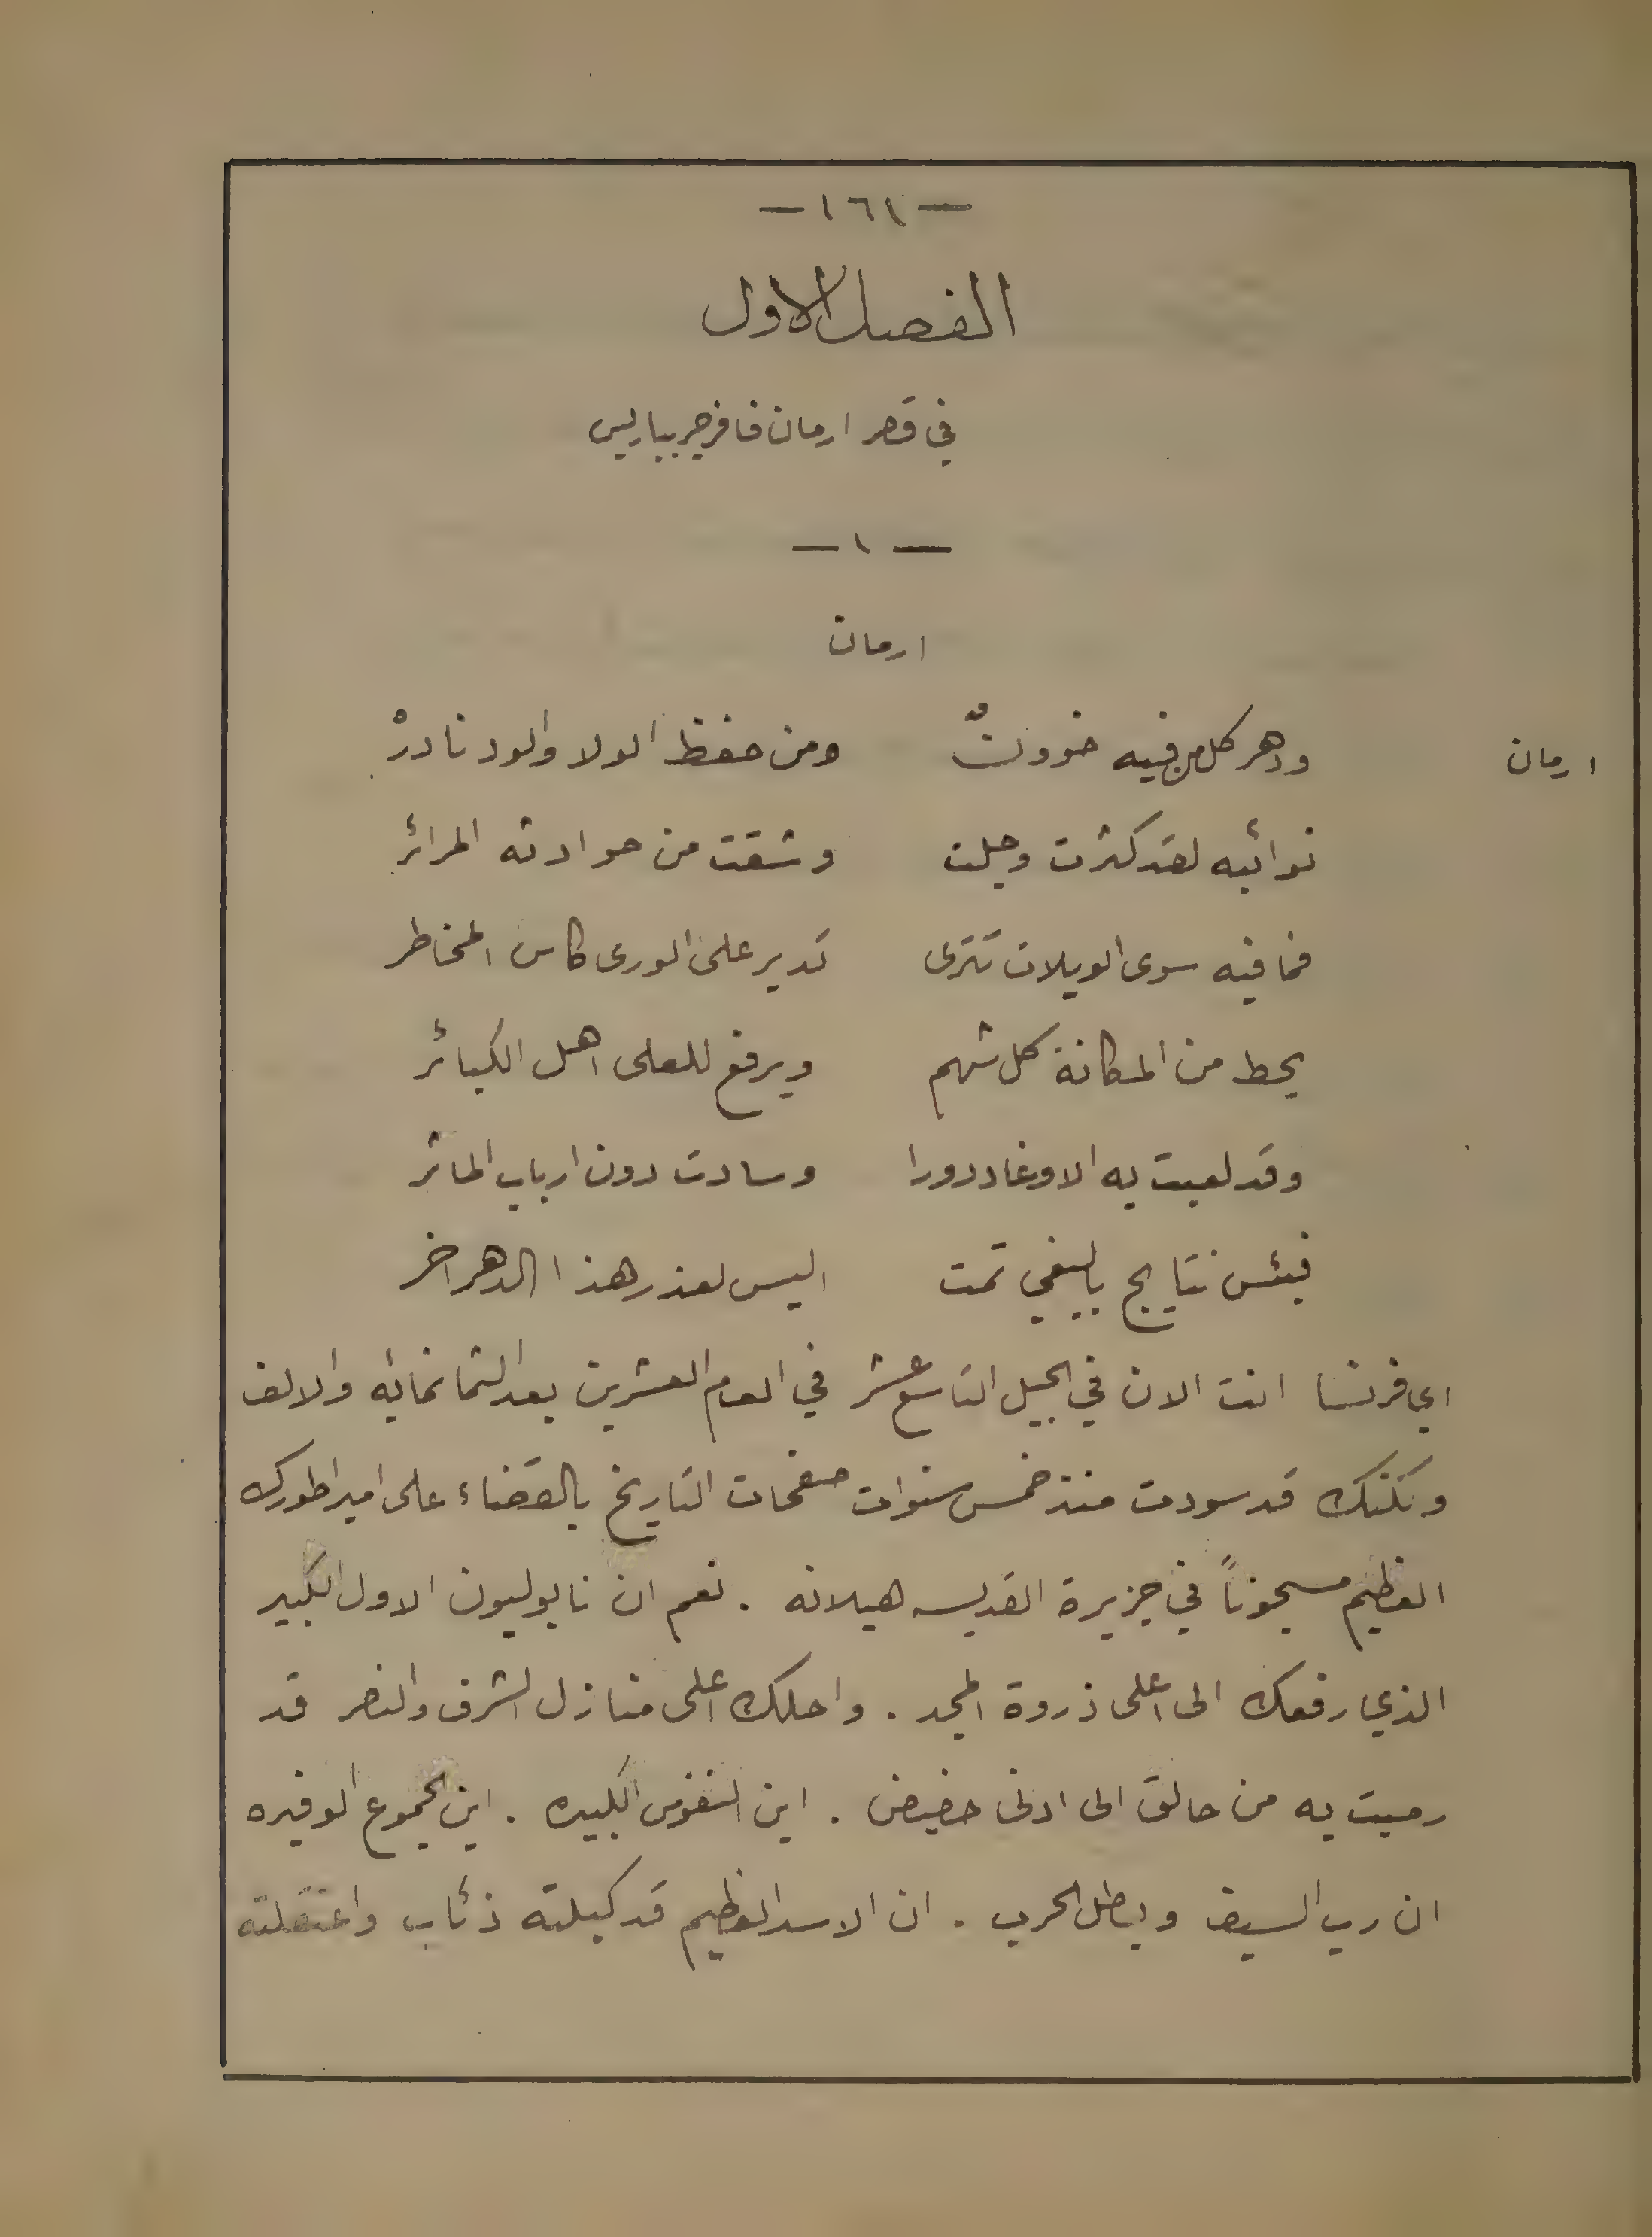 — ١٦١ —
الفصل الاول
في قصر ارمان فافرجر بباريس
— ١ —
ارمان
ارمان ودهر كل من فيه خوونٌ ومن حفظ الولا والود نادرْ
نوائبه لقد كثرت وجلت وشقت من حوادثه المرائر
فما فيه سوى الويلات تترى تدير على الورى كاس المخاطر
يحط من المكانة كل شهم ويرفع للعلى اهل الكبائر
وقد لعبت به الاوغاد دورا وسادت دون ارباب الماثر
فبئس نتايج بالبغي تمت اليس لغدر هذا الدهر اخر
اي فرنسا انت الان في الجيل التاسع عشر في العام العشرين بعد الثمانمايه والالف
ولكنك قد سودت منذ خمس سنوات صفحات التاريخ بالقضاء على امبراطورك
العظيم مسجوناً في جزيرة القديسه هيلانه . نعم ان نابوليون الاول الكبير
الذي رفعك الى اعلى ذروة المجد . واحلك اعلى منازل الشرف والنصر قد
رميت به من حالق الى ادنى حضيض . اين النفوس الكبيره . اين الجموع الوفيره
ان رب السيف وبطل الحرب . ان الاسد العظيم قد كبلته ذئاب واعتقلته